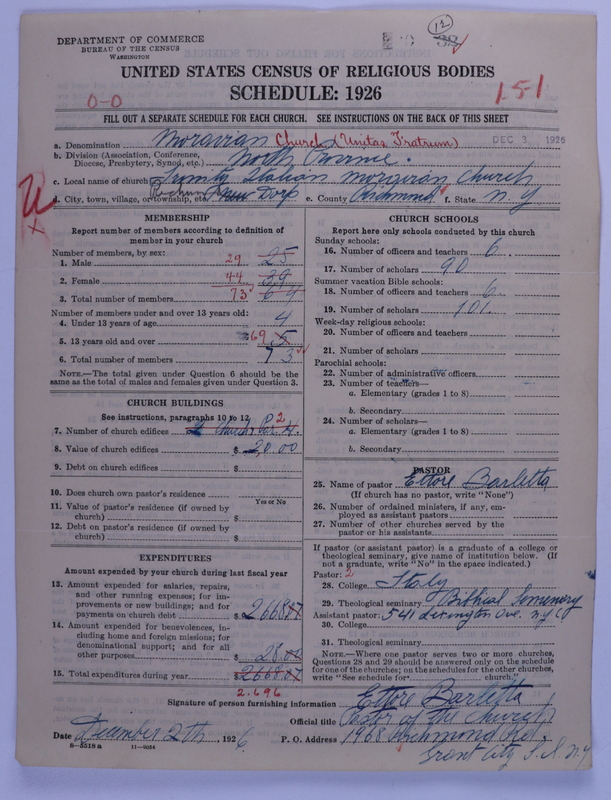 12
39
DEPARTMENT OF COMMERCE
BUREAU OF THE CENSUS
WASHINGTON
UNITED STATES CENSUS OF RELIGIOUS BODIES
SCHEDULE: 1926
0-0
151
FILL OUT A SEPARATE SCHEDULE FOR EACH CHURCH. SEE INSTRUCTIONS ON THE BACK OF THIS SHEET
DEC 3 1926
a. Denomination Moravian Church (Unitas Fratrum)
b. Division (Association, Conference, Diocese, Presbytery, Synod, etc.) North
c. Local name of church Trinity Italian Moravian Church
d. City, town, village, or township, etc. New Dorp e. County Richmond f. State N Y
MEMBERSHIP
Report number of members according to definition of member in your church
Number of members, by sex:
1. Male 29 25
2. Female 44 39
3. Total number of members 73 64
Number of members under and over 13 years old:
4. Under 13 years of age 4
5. 13 years old and over 69 5
6. Total number of members 73
NOTE.—The total given under Question 6 should be same as the total of males and females given under Question 3.
CHURCH BUILDINGS
See instructions, paragraphs 10 to 12
7. Number of church edifices 2
8. Value of church edifices $ 20.00
9. Debt on church edifices $
10. Does church own pastor's residence
Yes or No
11. Value of pastor's residence (if owned by church) $
12. Debt on pastor's residence (if owned by church) $
EXPENDITURES
Amount expended by your church during last fiscal year
13. Amount expended for salaries, repairs, and other running expenses; for improvements or new buildings; and for payments on church debt $ 2668.07
14. Amount expended for benevolences, including home and foreign missions; for denominational support; and for all other purposes $ 28.00
15. Total expenditures during year $ 2668.07
2.696
CHURCH SCHOOLS
Report here only schools conducted by this church
Sunday schools:
16. Number of officers and teachers 6
17. Number of scholars 90
Summer vacation Bible schools:
18. Number of officers and teachers 6
19. Number of scholars 101
Week-day religious schools:
20. Number of officers and teachers
21. Number of scholars
Parochial schools:
22. Number of administrative officers
23. Number of teachers—
a. Elementary (grades 1 to 8)
b. Secondary
24. Number of scholars—
a. Elementary (grades 1 to 8)
b. Secondary
PASTOR
25. Name of pastor Ettore Barletta
(If church has no pastor, write "None")
26. Number of ordained ministers, if any, employed as assistant pastors
27. Number of other churches served by the pastor or his assistants
If pastor (or assistant pastor) is a graduate of a college or theological seminary, give name of institution below. (If not a graduate, write "No" in the space indicated.)
Pastor: 2
28. College Italy
29. Theological seminary Biblical Seminary
Assistant pastor: 541 Lexington Ave. N.Y.C
30. College
31. Theological seminary
NOTE.—Where one pastor serves two or more churches, Questions 28 and 29 should be answered only on the schedule for one of the churches; on the schedules for the other churches, write "See schedule for" church."
Signature of person furnishing information Ettore Barletta
Official title Pastor of the Church
Date December 2th, 1926.
P. O. Address 1968 Richmond Rd.
Grant City S. I. N. Y.
8—5518 a 11—9054